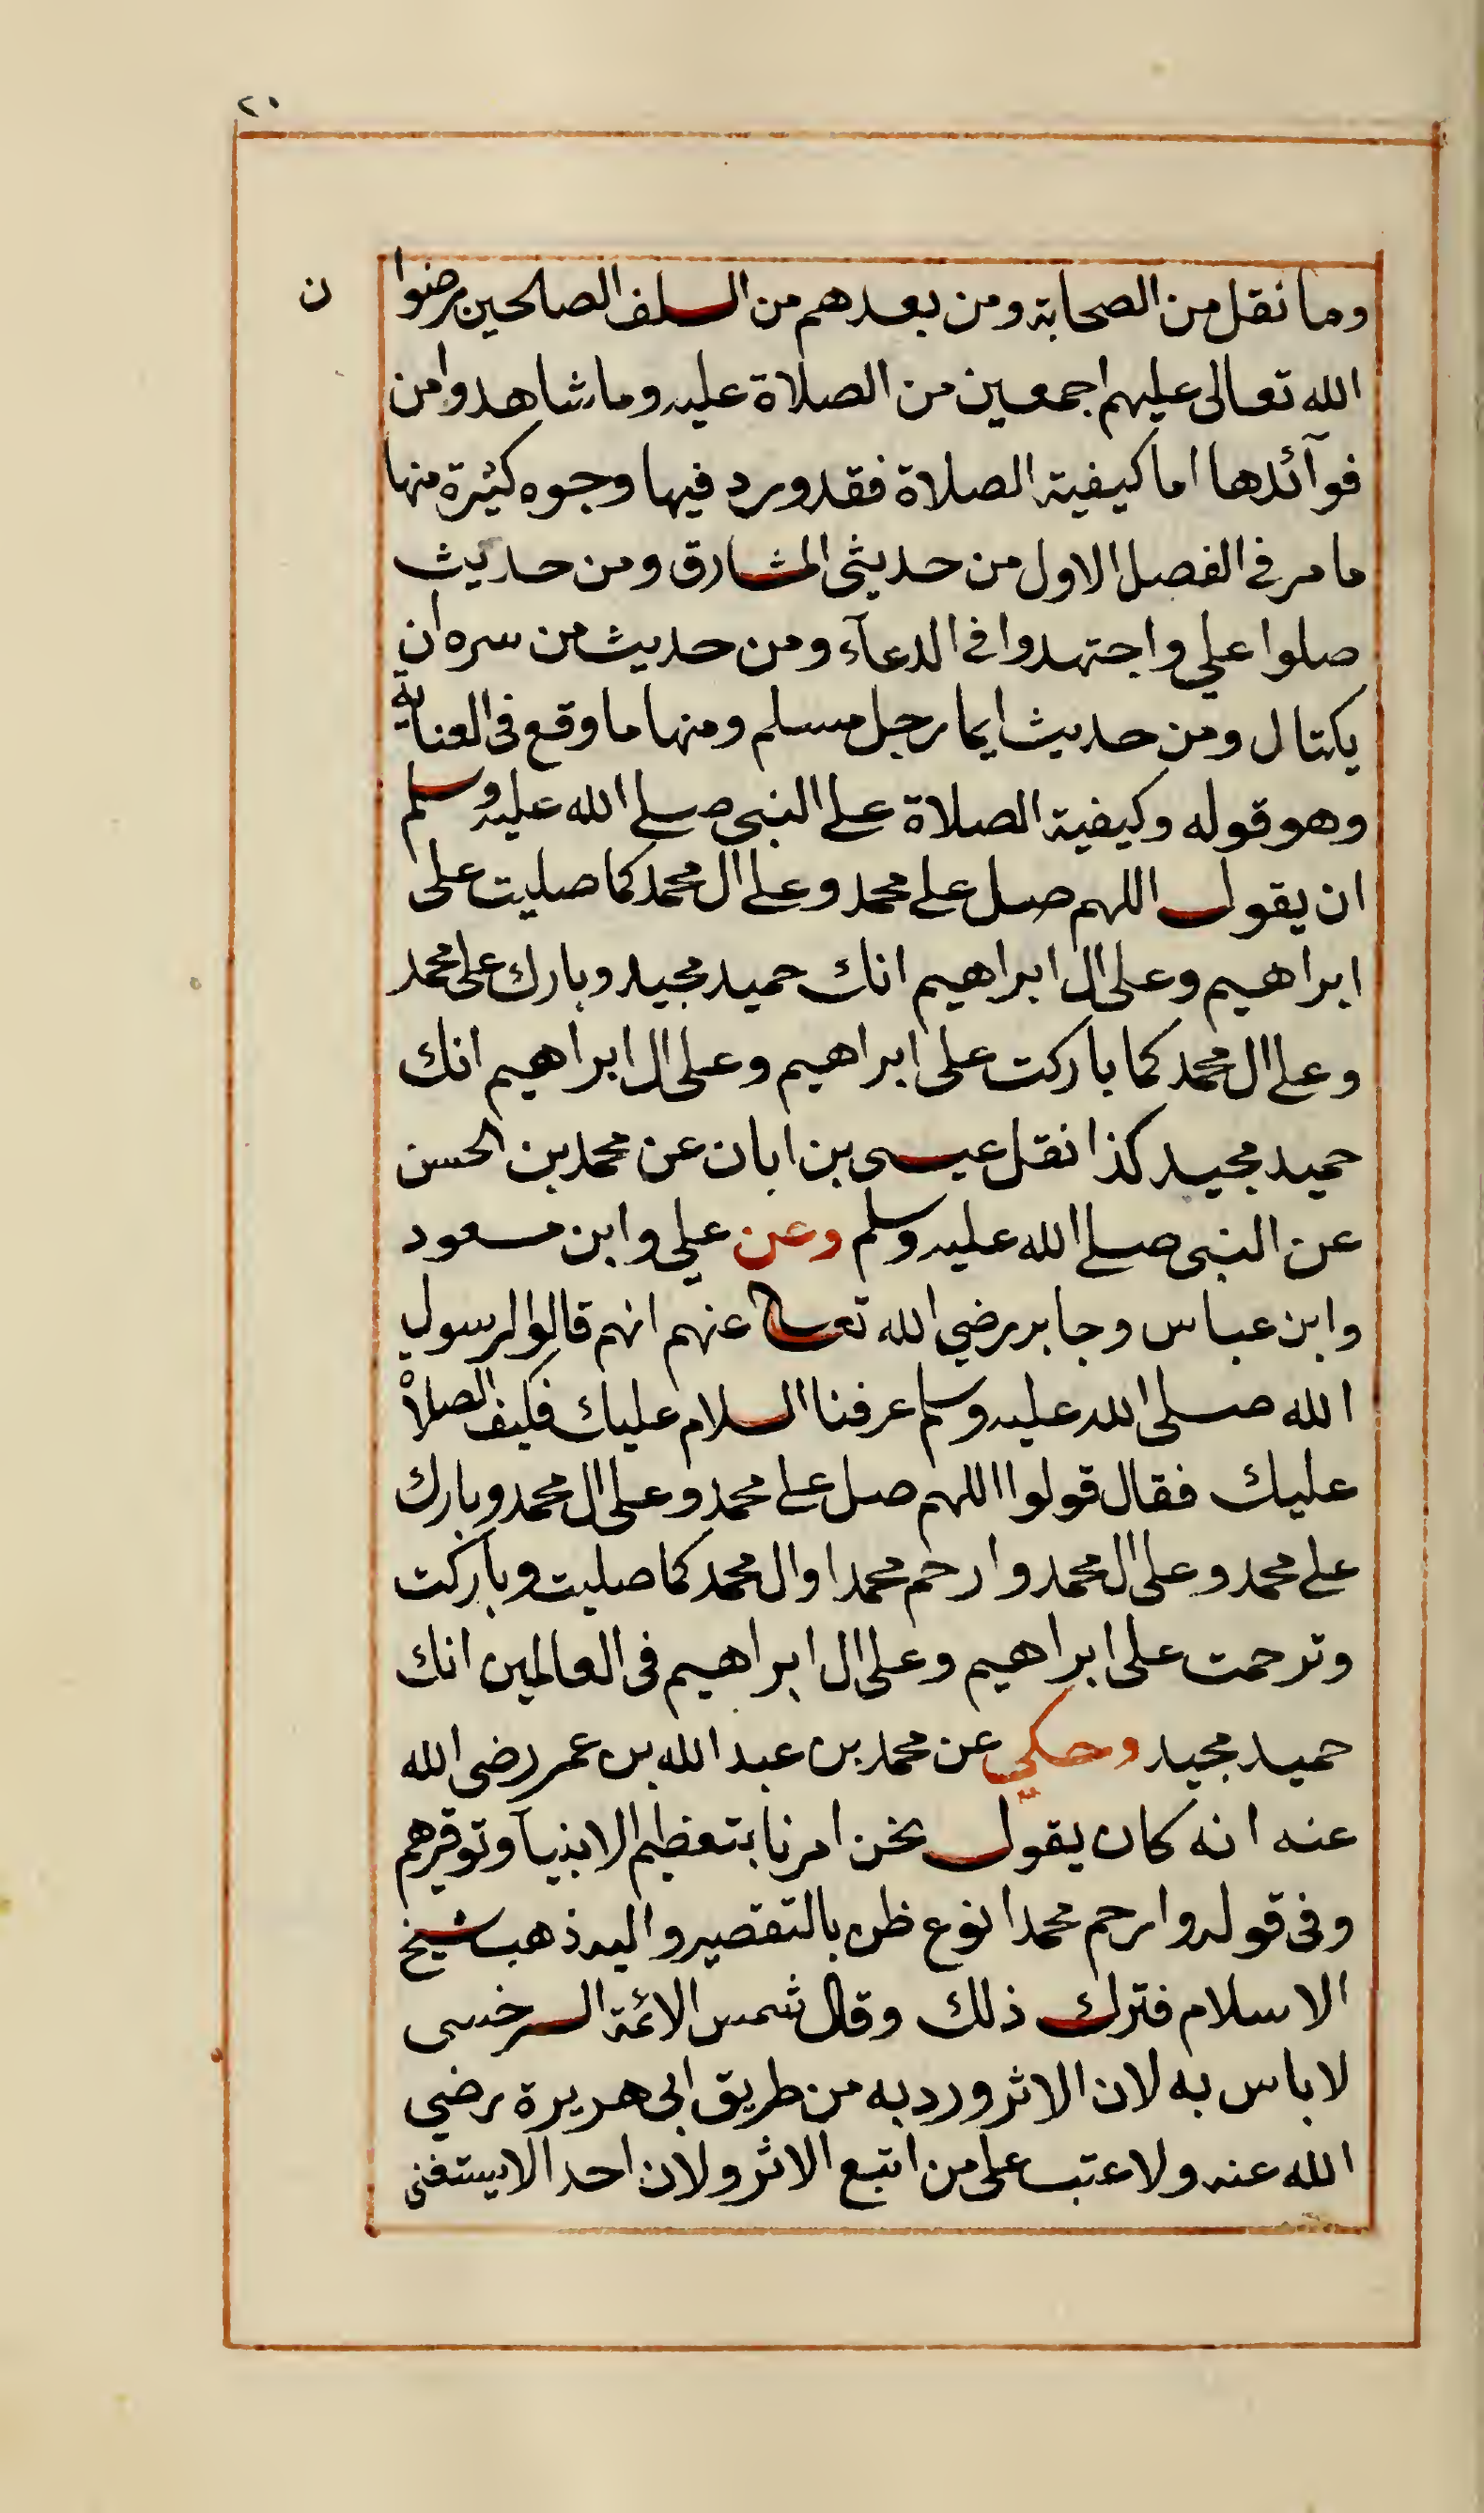 ٢٠
وما نقل من الصحابة ومن بعدهم من السلف الصالحين رضوا
ن
الله تعالى عليهم اجمعين من الصلاة عليه وما شاهدوا من
فوآئدها اما كيفية الصلاة فقد ورد فيها وجوه كثيرة منها
ما مر في الفصل الاول من حديثي المشارق ومن حديث
صلوا علي واجتهدوا في الدعآء ومن حديث من سره ان
يكتال ومن حديث ايما رجل مسلم ومنها ما وقع في العناية
وهو قوله وكيفية الصلاة على النبي صلى الله عليه وسلم
ان يقول اللهم صل على محمد وعلى ال محمد كما صليت على
ابراهيم وعلى ال ابراهيم انك حميد مجيد وبارك على محمد
وعلى ال محمد كما باركت على ابراهيم وعلى ال ابراهيم انك
حميد مجيد كذا نقل عيسى بن ابان عن محمد بن الحسن
عن النبي صلى الله عليه وسلم وعن علي وابن مسعود
وابن عباس وجابر رضي الله تعالى عنهم انهم قالوا لرسول
الله صلى الله عليه وسلم عرفنا السلام عليك فكيف الصلاة
عليك فقال قولوا اللهم صل على محمد وعلى ال محمد وبارك
على محمد وعلى ال محمد وارحم محمدا وال محمد كما صليت وباركت
وترحمت على ابراهيم وعلى ال ابراهيم في العالمين انك
حميد مجيد وحكي عن محمد بن عبد الله بن عمر رضي الله
عنه انه كان يقول نحن امرنا بتعظيم الانبيآ وتوقيرهم
وفي قوله وارحم محمدا نوع ظن بالتقصير واليه ذهب شيخ
الاسلام فترك ذلك وقال شمس الائمة السرخسي
لا باس به لان الاثر ورد به من طريق ابي هريرة رضي
الله عنه ولا عتب على من اتبع الاثر ولان احدا لا يستغني